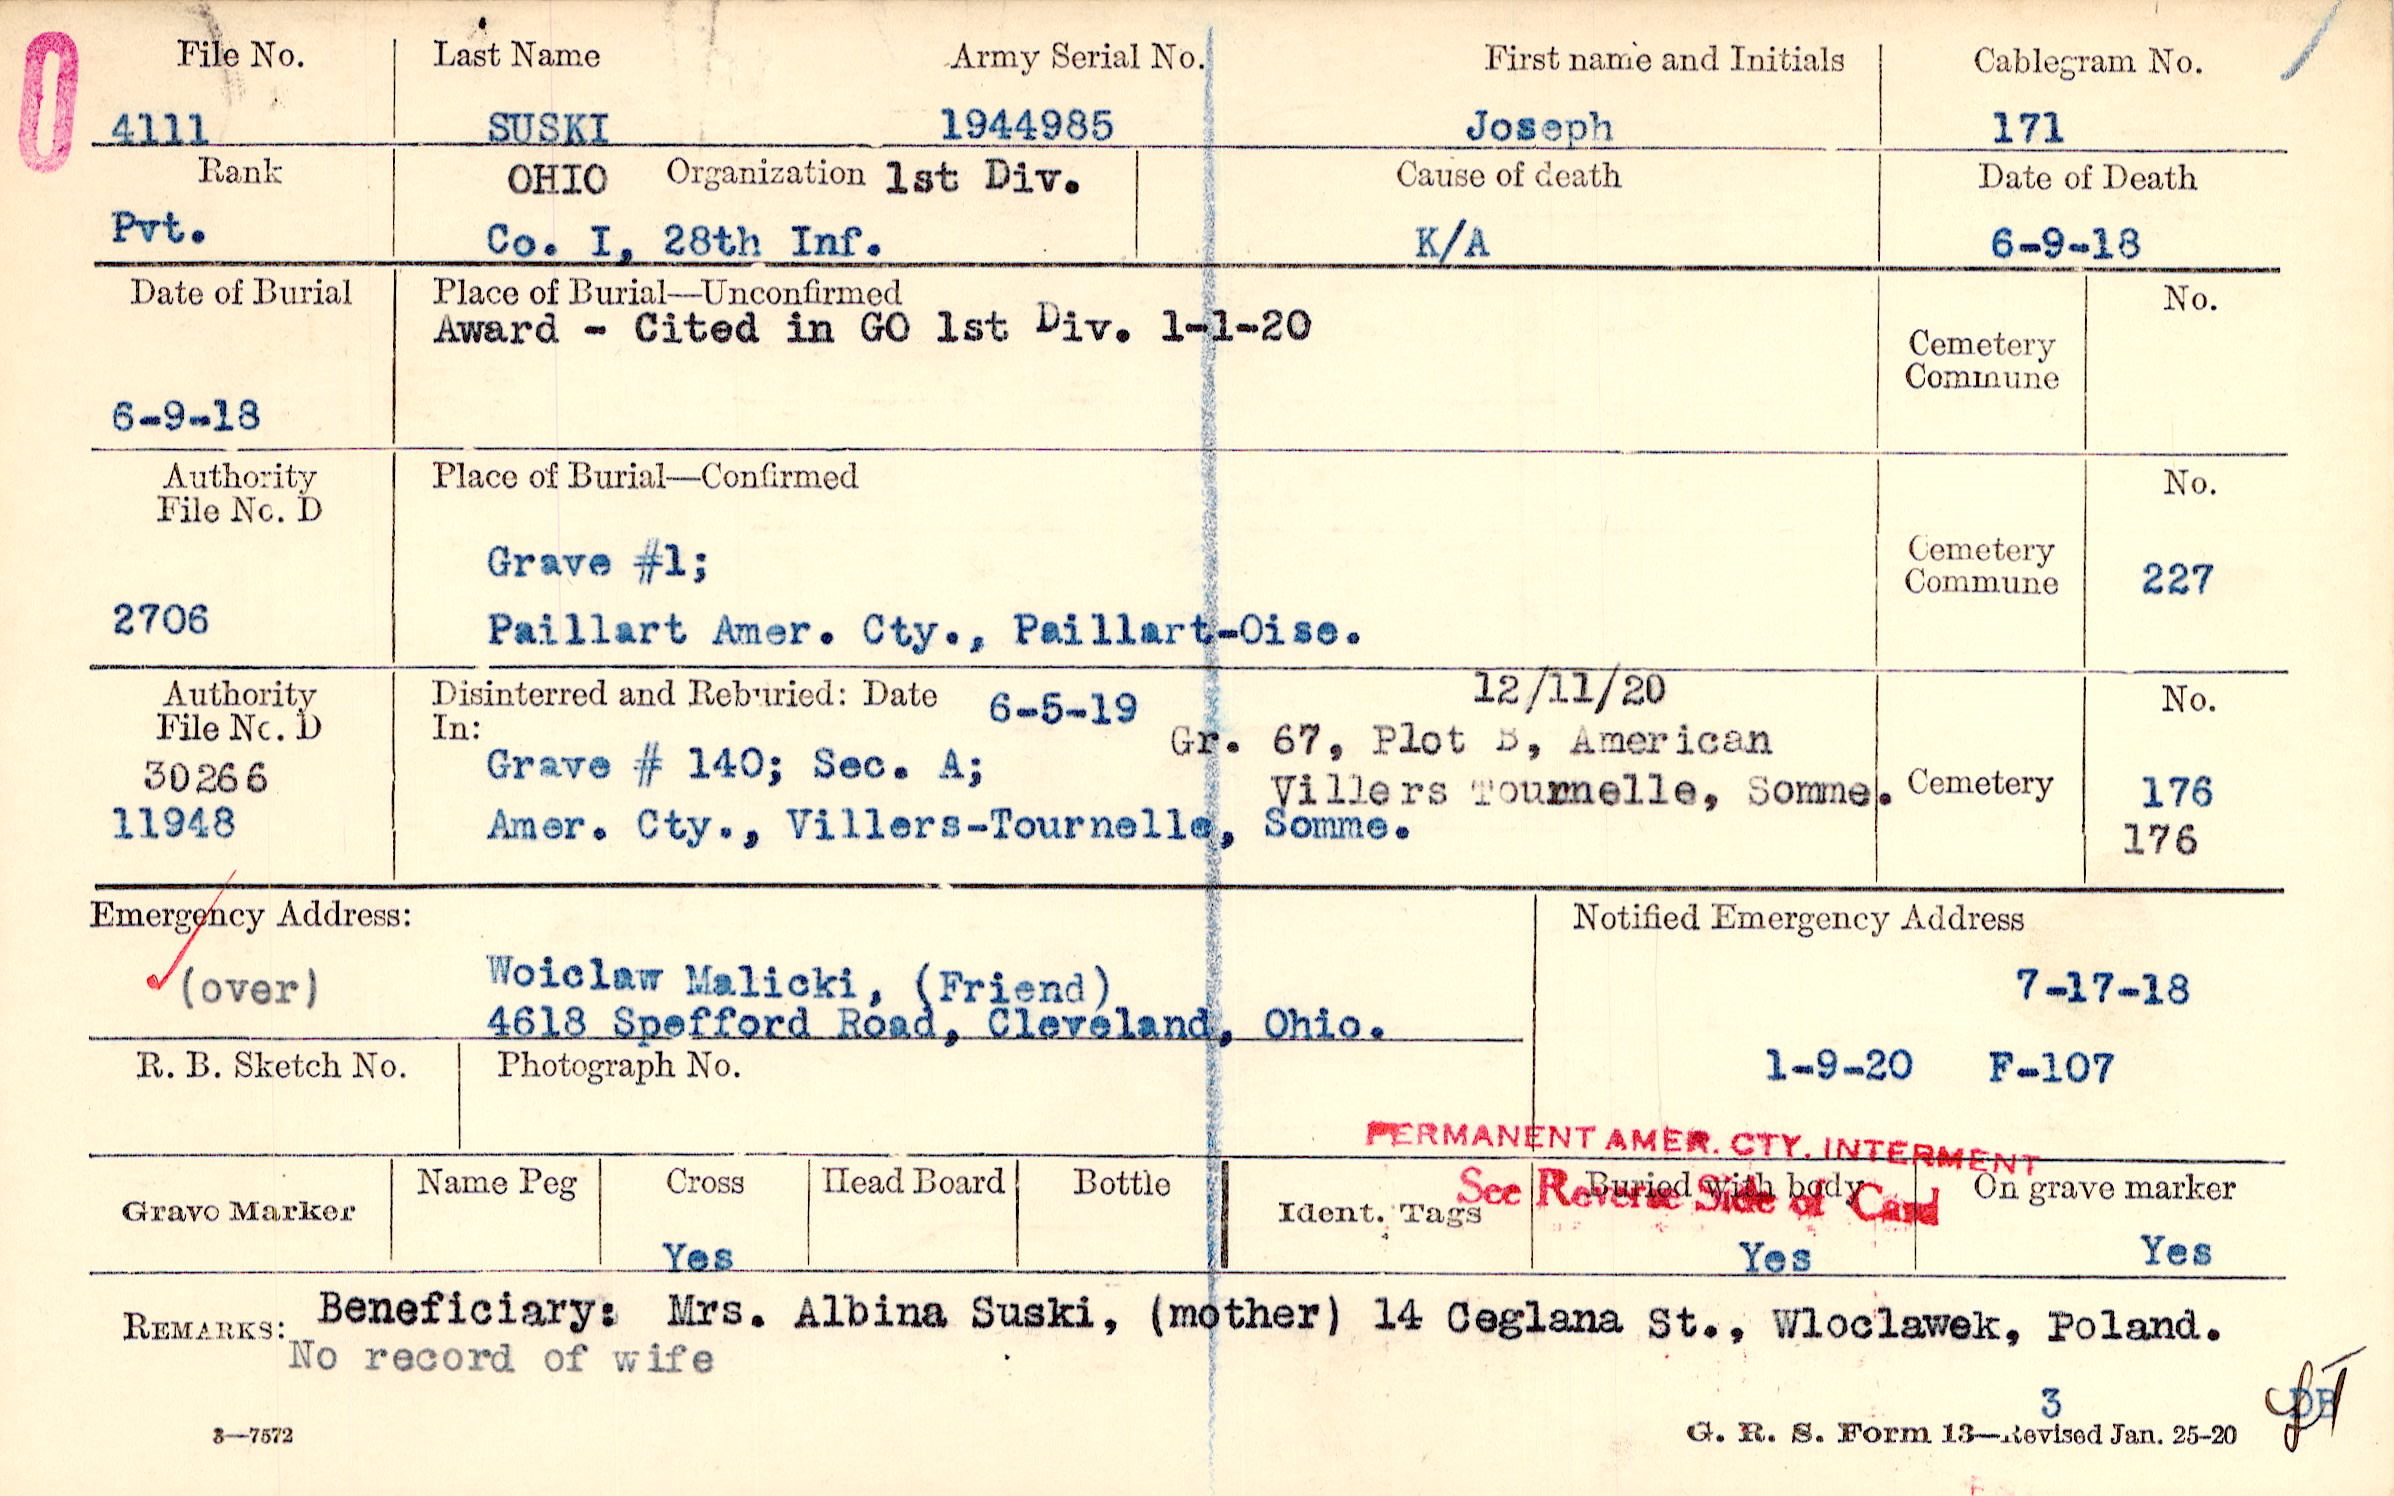 File No. Last Name Army Serial No. First name and Initials Cablegram No.
4111 SUSKI 1944985 Joseph 171
Rank OHIO Organization 1st Div. Cause of death Date of Death
Pvt. Co. I, 28th Inf. K/A 6-9-18
Date of Burial Place of Burial—Unconfirmed No.
Award - Cited in GO 1st Div. 1-1-20
Cemetery
Commune
6-9-18
Authority Place of Burial—Confirmed No.
File No. D
Grave #1; Cemetery
Commune 227
2706 Paillart Amer. Cty., Paillart-Oise.
Authority Disinterred and Reburied: Date 6-5-19 12/11/20 No.
File No. D In: Gr. 67, Plot B, American
30266 Grave # 140; Sec. A; Villers Tournelle, Somme. Cemetery 176
11948 Amer. Cty., Villers-Tournelle, Somme. 176
Emergency Address: Notified Emergency Address
(over) Woiclaw Malicki, (Friend) 7-17-18
4618 Spefford Road, Cleveland, Ohio.
R. B. Sketch No. Photograph No. 1-9-20 F-107
PERMANENT AMER. CTY. INTERMENT
See Reverse Side of Card
Grave Marker Name Peg Cross Head Board Bottle Ident. Tags Buried with body On grave marker
Yes Yes Yes
REMARKS: Beneficiary: Mrs. Albina Suski, (mother) 14 Ceglana St., Wloclawek, Poland.
No record of wife
3
3—7572 G. R. S. Form 13—Revised Jan. 25-20